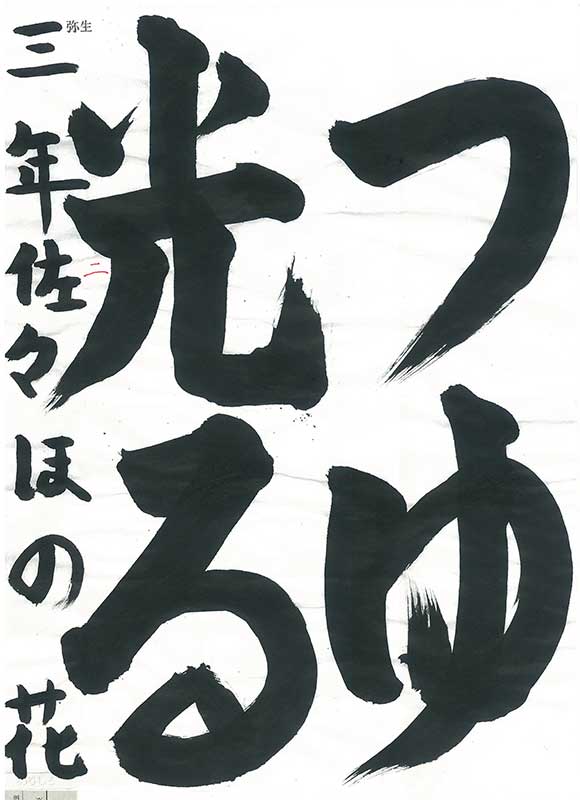 つゆ
光る
三年佐々ほの花
弥生
二